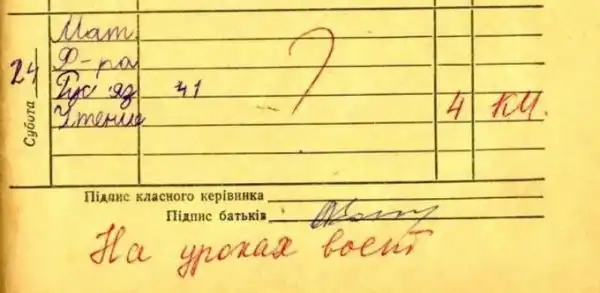 Мат.
24
Ф-ра
Рус яз 41
Субота
Чтение 4
Підпис класного керівника
Підпис батьків
На уроках воет